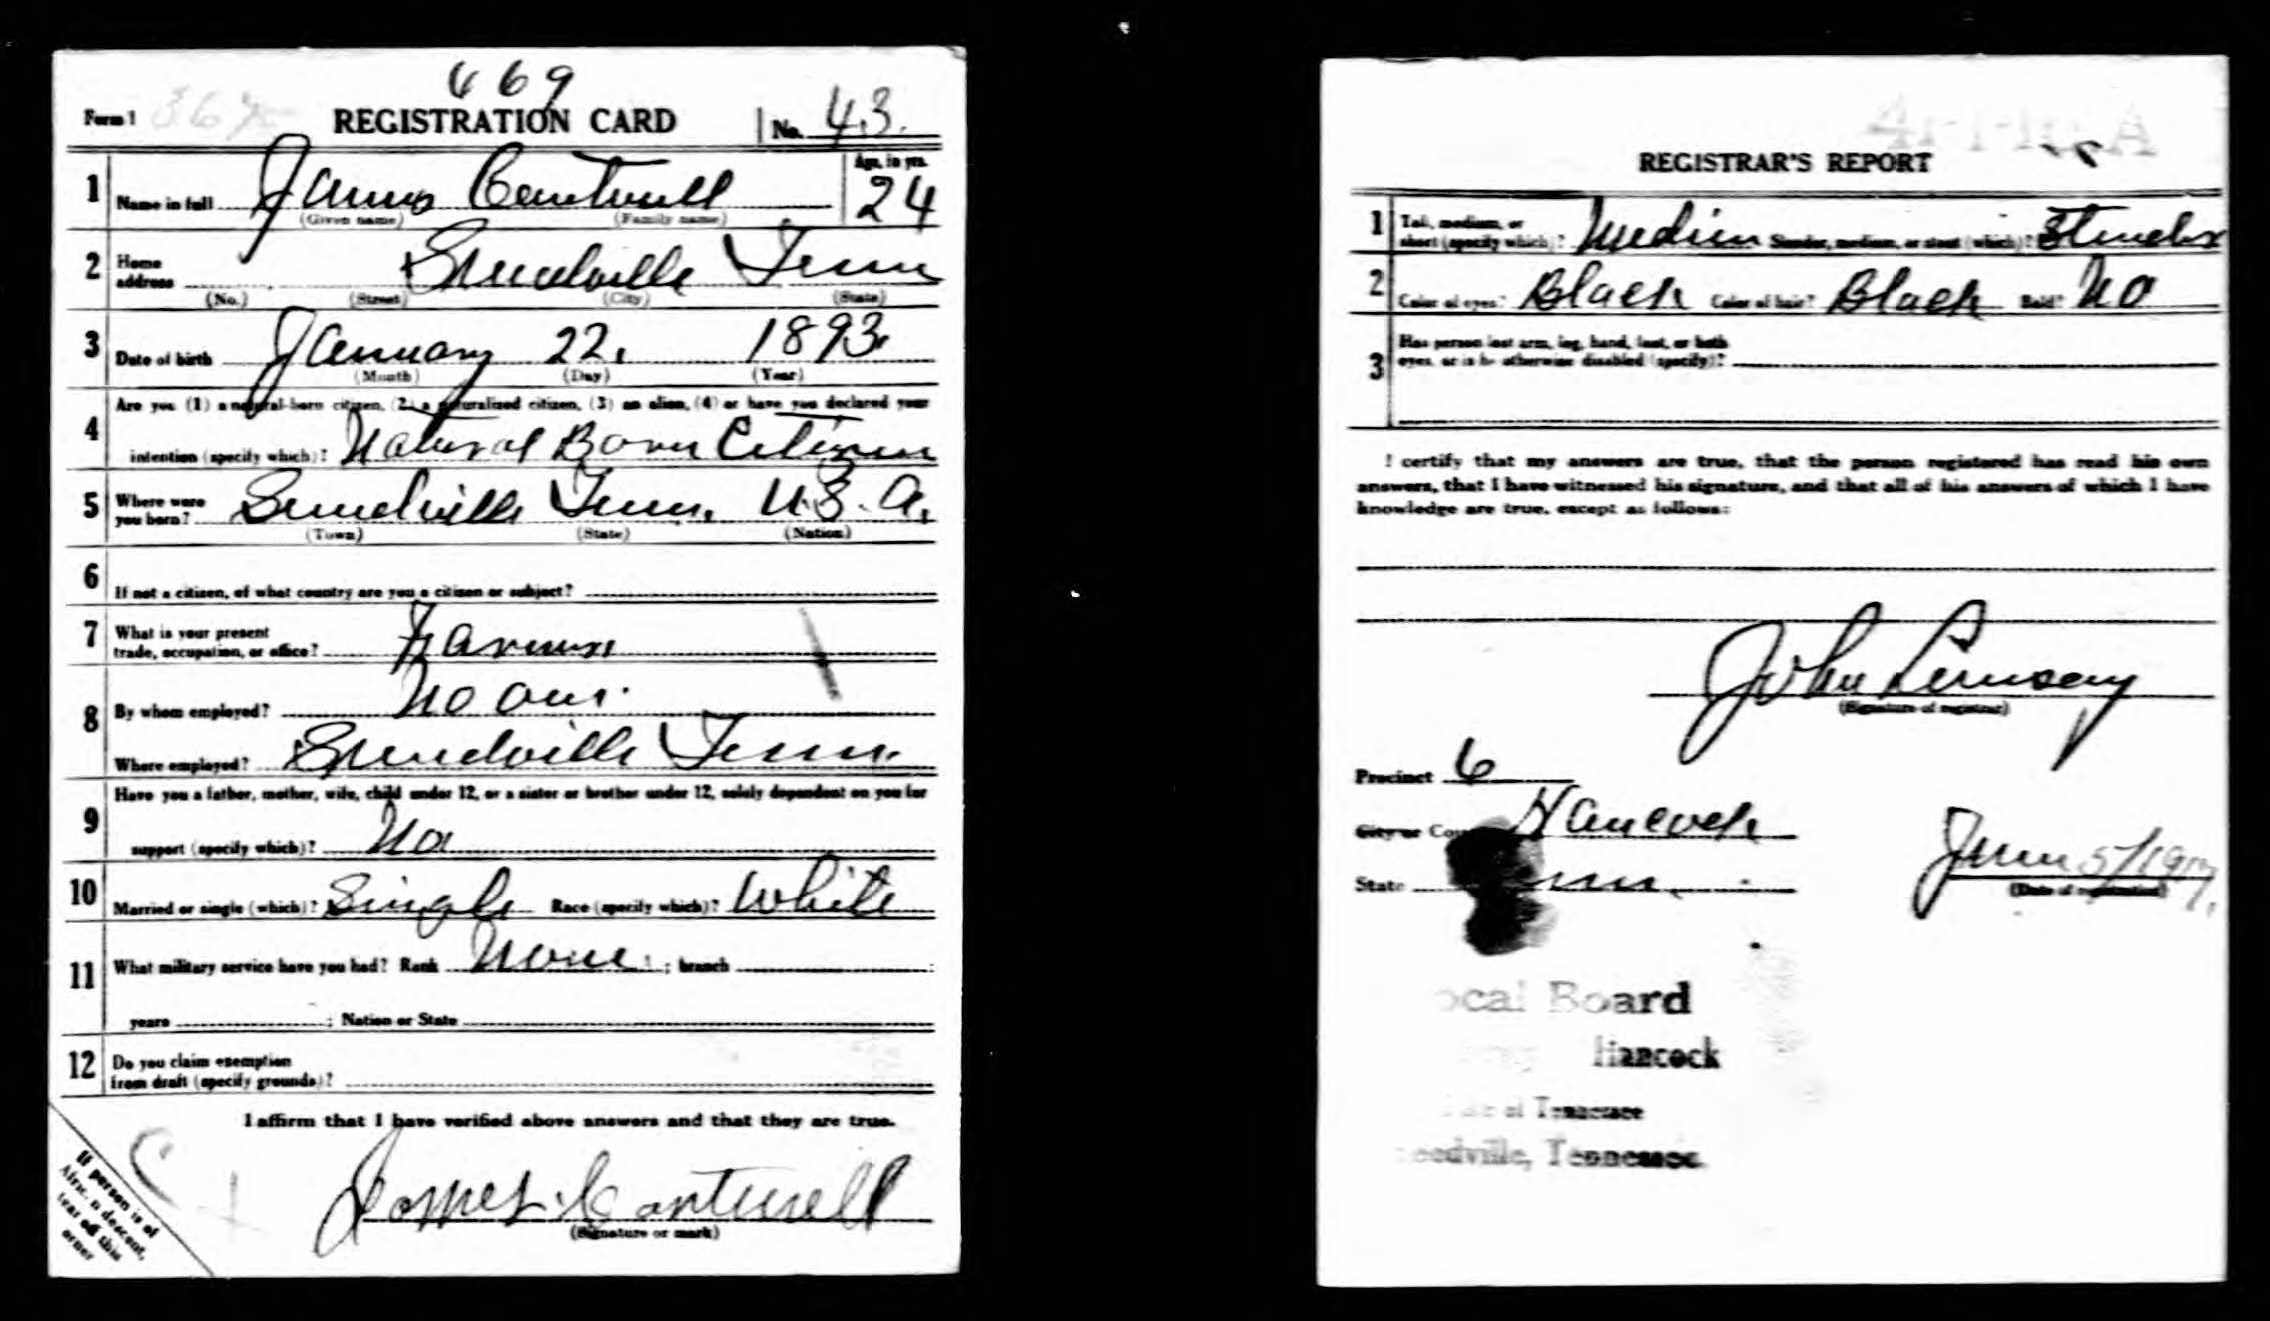 469
Form 1 367 REGISTRATION CARD No. 43.
1 Name in full James Cantwell Age, in yrs. 24
(Given name) (Family name)
2 Home address Sneedville Tenn
(No.) (Street) (City) (State)
3 Date of birth January 22, 1893.
(Month) (Day) (Year)
4 Are you (1) a natural-born citizen, (2) a naturalized citizen, (3) an alien, (4) or have you declared your
intention (specify which)? Natural Born Citizen
5 Where were you born? Sneedville Tenn. U.S.A.
(Town) (State) (Nation)
6 If not a citizen, of what country are you a citizen or subject?
7 What is your present trade, occupation, or office? Farmer
8 By whom employed? No one.
Where employed? Sneedville Tenn.
9 Have you a father, mother, wife, child under 12, or a sister or brother under 12, solely dependent on you for
support (specify which)? No
10 Married or single (which)? Single Race (specify which)? White
11 What military service have you had? Rank None ; branch
years ; Nation or State
12 Do you claim exemption
from draft (specify grounds)?
I affirm that I have verified above answers and that they are true.
James Cantwell
(Signature or mark)
If person is of
African descent,
tear off this
corner
REGISTRAR'S REPORT
1 Tall, medium, or short (specify which)? Medium Slender, medium, or stout (which)? Slender
2 Color of eyes? Black Color of hair? Black Bald? No
3 Has person lost arm, leg, hand, foot, or both
eyes, or is he otherwise disabled (specify)?
I certify that my answers are true, that the person registered has read his own
answers, that I have witnessed his signature, and that all of his answers of which I have
knowledge are true, except as follows:
John
(Signature of registrar)
Precinct 6
City or County Hancock
State Tenn. June 5/1917.
(Date of registration)
ocal Board
Hancock
of Tennessee
eedville, Tennessee.